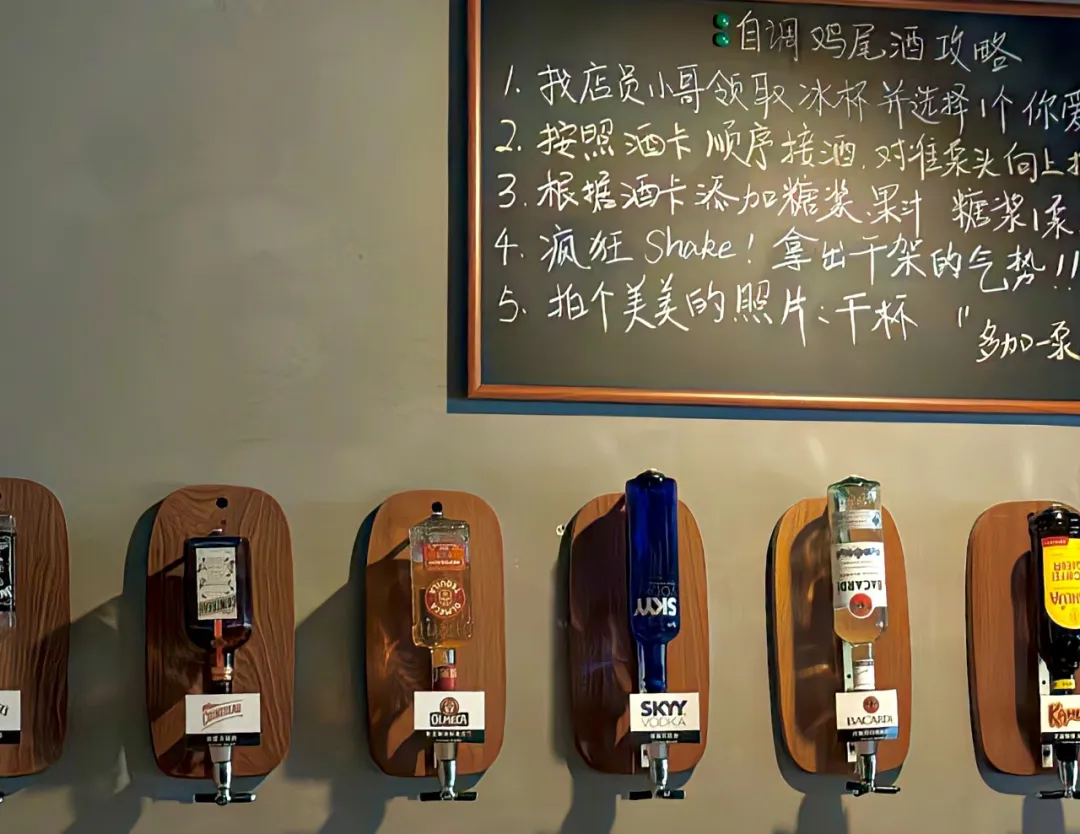 自调鸡尾酒攻略
1. 找店员小哥领取冰杯并选择1个你爱
2. 按照酒卡顺序接酒.对准泵头向上
3. 根据酒卡添加糖浆.果汁 糖浆1泵.
4. 疯狂 Shake! 拿出干架的气势!!
5. 拍个美美的照片:干杯 "
多加一泵
COINTREAU
TEQUILA
OLMECA
SKYY
VODKA
BACARDI
COINTREAU
OLMECA
SKYY
VODKA
BACARDI